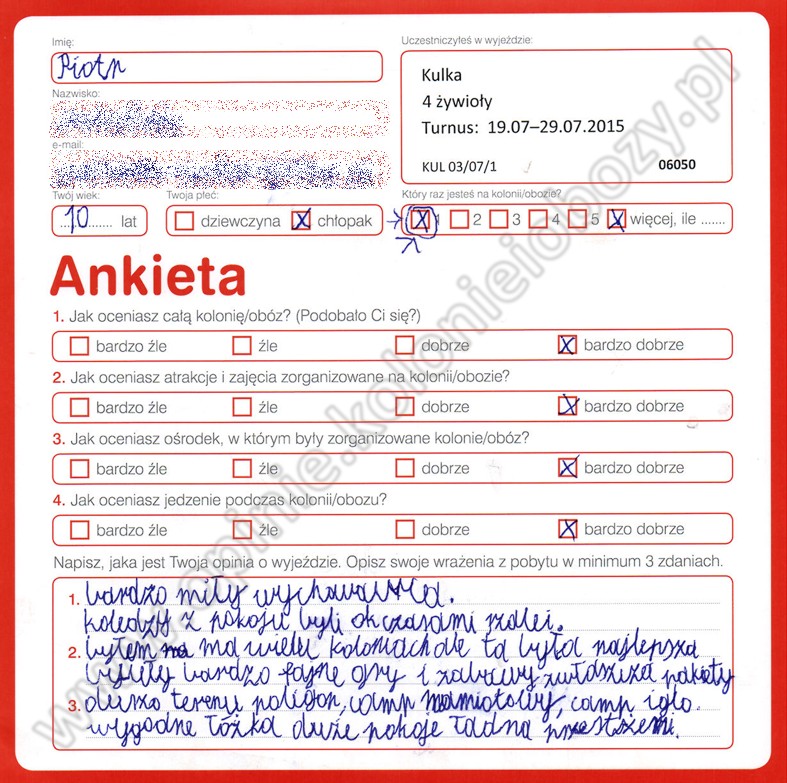 Imię:
Piotr
Uczestniczyłeś w wyjeździe:
Kulka
4 żywioły
Turnus: 19.07–29.07.2015
KUL 03/07/1 06050
Nazwisko:
e-mail:
Twój wiek:
10 lat
Twoja płeć:
dziewczyna X chłopak
Który raz jesteś na kolonii/obozie?
X 1 2 3 4 5 X więcej, ile .......
Ankieta
1. Jak oceniasz całą kolonię/obóz? (Podobało Ci się?)
bardzo źle źle dobrze X bardzo dobrze
2. Jak oceniasz atrakcje i zajęcia zorganizowane na kolonii/obozie?
bardzo źle źle dobrze X bardzo dobrze
3. Jak oceniasz ośrodek, w którym były zorganizowane kolonie/obóz?
bardzo źle źle dobrze X bardzo dobrze
4. Jak oceniasz jedzenie podczas kolonii/obozu?
bardzo źle źle dobrze X bardzo dobrze
Napisz, jaka jest Twoja opinia o wyjeździe. Opisz swoje wrażenia z pobytu w minimum 3 zdaniach.
1. bardzo miły wychowawca.
koledzy z pokoju byli ok czasami
2. byłem na wielu koloniach ale ta była najlepsza
były bardzo fajne gry i zabawy zwłaszcza
3. dużo terenu poligon, camp namiotowy, camp iglo.
wygodne łóżka duże pokoje ładna
www.opinie.kolonieiobozy.pl